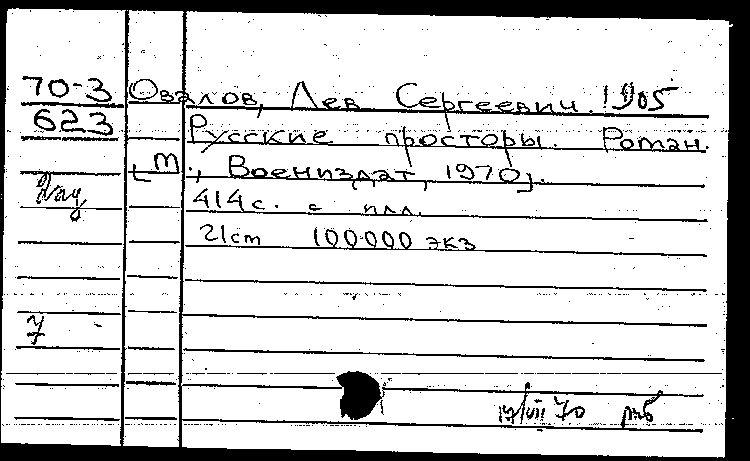 70-3 Овалов, Лев Сергеевич. 1905
623 Русские просторы. Роман.
[М., Воениздат, 1970].
414с. с илл.
21cm 100.000 экз
7
17/VII 70